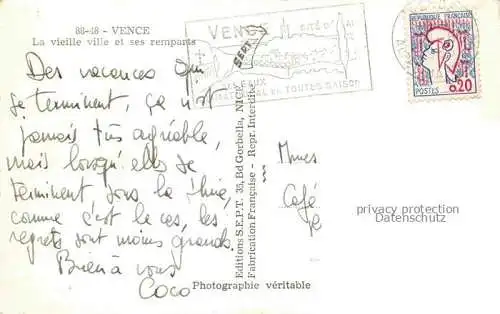 88-48 - VENCE
La vieille ville et ses remparts
VENCE
CITÉ D'
EN TOUTES SAISON
SEPT
REPUBLIQUE FRANÇAISE
POSTES 0,20
Des vacances qui
se terminent, ça n'est
jamais très agréable,
mais lorsqu'elles se
terminent sous la
comme c'est le cas, les
regrets sont moins grands.
Bien à vous
Coco
Editions S.E.P.T. 35, Bd Gorbella, NICE
Fabrication Française - Repr. Interdite
Photographie véritable
Mmes
Café
privacy protection
Datenschutz